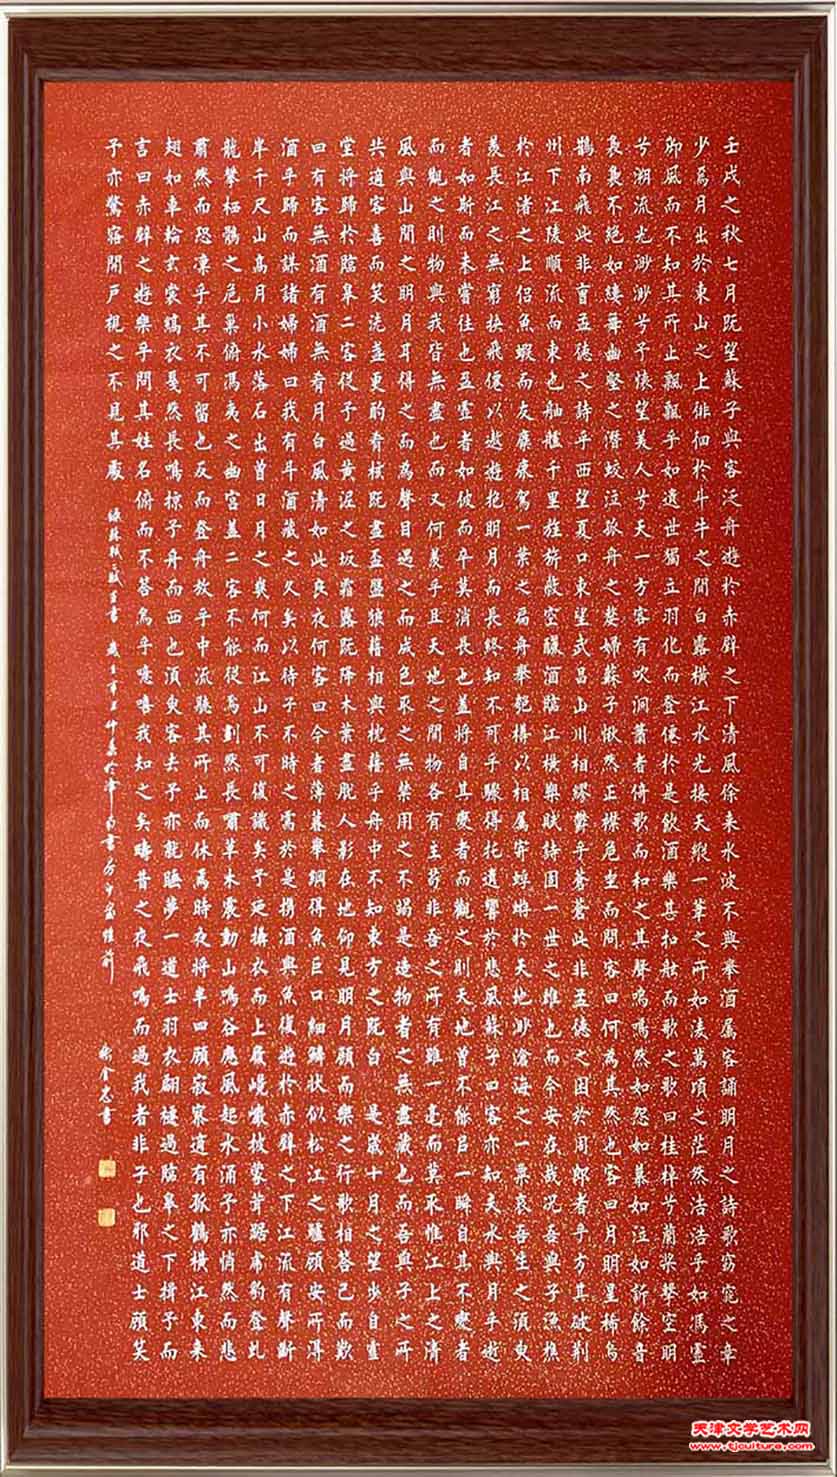 壬戌之秋七月既望蘇子與客泛舟遊於赤壁之下清風徐来水波不興舉酒属客誦明月之詩歌窈窕之章
少焉月出於東山之上徘徊於斗牛之間白露橫江水光接天縱一葦之所如淩萬頃之茫然浩浩乎如馮虛
御風而不知其所止飄飄乎如遺世獨立羽化而登僊於是飲酒樂甚扣舷而歌之歌曰桂棹兮蘭槳擊空明
兮溯流光渺渺兮予懷望美人兮天一方客有吹洞簫者倚歌而和之其聲嗚嗚然如怨如慕如泣如訴餘音
裊裊不絶如縷舞幽壑之潛蛟泣孤舟之嫠婦蘇子愀然正襟危坐而問客曰何為其然也客曰月明星稀烏
鵲南飛此非曹孟德之詩乎西望夏口東望武昌山川相繆鬱乎蒼蒼此非孟德之困於周郎者乎方其破荆
州下江陵順流而東也舳艫千里旌旂蔽空釃酒臨江橫槊賦詩固一世之雄也而今安在哉況吾與子漁樵
於江渚之上侶魚蝦而友麋鹿駕一葉之扁舟舉匏樽以相属寄蜉蝣於天地渺滄海之一粟哀吾生之須臾
羨長江之無窮挾飛僊以遨遊抱明月而長終知不可乎驟得托遺響於悲風蘇子曰客亦知夫水與月乎逝
者如斯而未嘗往也盈虛者如彼而卒莫消長也蓋將自其變者而觀之則天地曾不能以一瞬自其不變者
而觀之則物與我皆無盡也而又何羨乎且天地之間物各有主苟非吾之所有雖一毫而莫取惟江上之清
風與山間之明月耳得之而為聲目遇之而成色取之無禁用之不竭是造物者之無盡藏也而吾與子之所
共適客喜而笑洗盞更酌肴核既盡杯盤狼藉相與枕藉乎舟中不知東方之既白 是歲十月之望步自雪
堂將歸於臨皋二客從予過黃泥之坂霜露既降木葉盡脱人影在地仰見明月顧而樂之行歌相答已而歎
曰有客無酒有酒無肴月白風清如此良夜何客曰今者薄暮舉網得魚巨口細鱗狀似松江之鱸顧安所得
酒乎歸而謀諸婦婦曰我有斗酒藏之久矣以待子不時之需於是攜酒與魚復遊於赤壁之下江流有聲斷
岸千尺山高月小水落石出曾日月之幾何而江山不可復識矣予廼攝衣而上履巉巖披蒙茸踞虎豹登虬
龍攀栖鶻之危巢俯馮夷之幽宮蓋二客不能從焉劃然長嘯草木震動山鳴谷應風起水涌予亦悄然而悲
肅然而恐凜乎其不可留也反而登舟放乎中流聽其所止而休焉時夜將半四顧寂寥適有孤鶴橫江東来
翅如車輪玄裳縞衣戛然長鳴掠予舟而西也須臾客去予亦就睡夢一道士羽衣翩躚過臨皋之下揖予而
言曰赤壁之遊樂乎問其姓名俯而不答烏乎噫嘻我知之矣疇昔之夜飛鳴而過我者非子也邪道士顧笑
予亦驚寤開戶視之不見其處
天津文学艺术网
www.tjculture.com